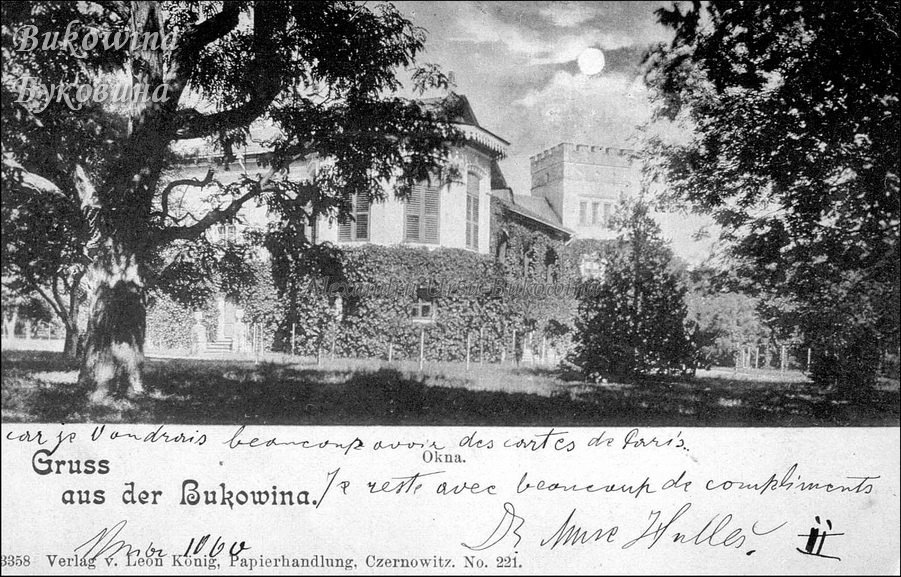 Bukowina
Буковина
Alexander Ursu Bukowina
car je Voudrais beaucoup avoir des cartes de Paris.
Okna.
Gruss
aus der Bukowina.
Je reste avec beaucoup de compliments
Dr
II
3358 Verlag v. Leon König, Papierhandlung, Czernowitz. No. 221.